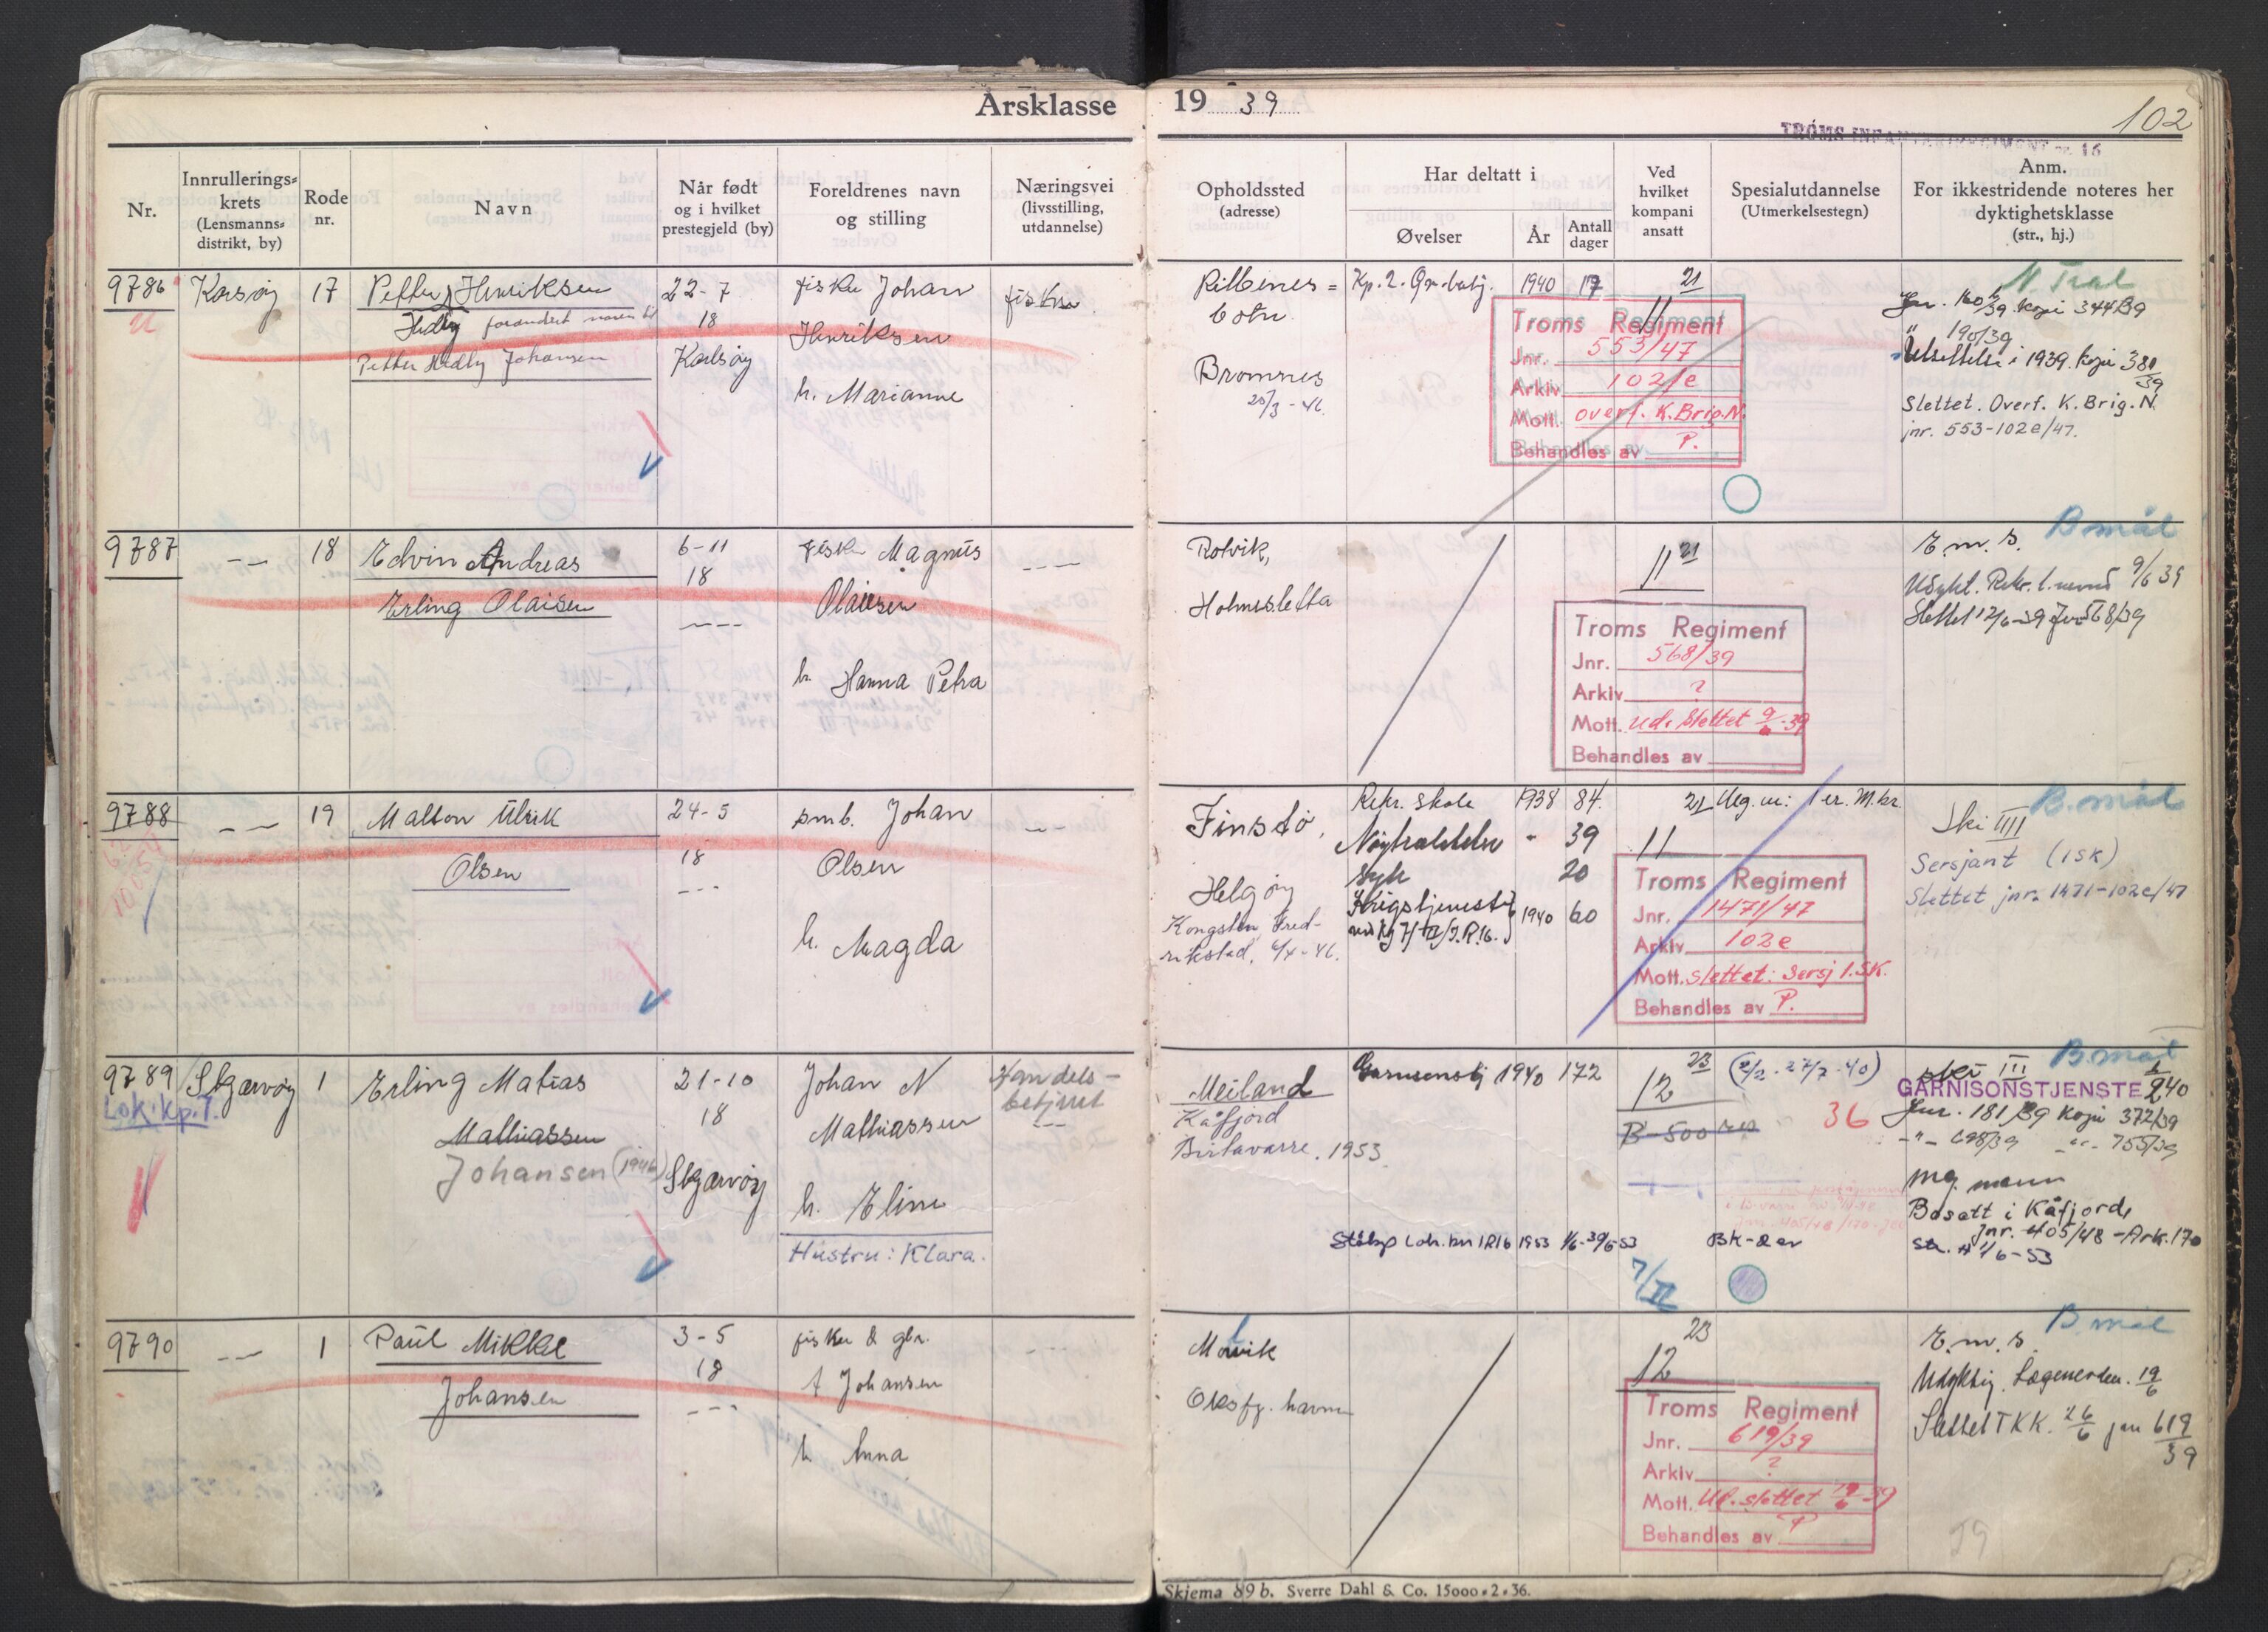 Årsklasse 19 39
102
TROMS INFANTERIREGIMENT nr. 16
Nr.
Innrullerings-
krets
(Lensmanns-
distrikt, by)
Rode
nr.
Navn
Når født
og i hvilket
prestegjeld (by)
Foreldrenes navn
og stilling
Næringsvei
(livsstilling,
utdannelse)
Opholdssted
(adresse)
Har deltatt i
Øvelser
År
Antall
dager
Ved
hvilket
kompani
ansatt
Spesialutdannelse
(Utmerkelsestegn)
Anm.
For ikkestridende noteres her
dyktighetsklasse
(str., hj.)
9786
Karlsøy
17
Petter Henriksen
Hedly forandret navn til
Petter Hedly Johansen
22-7
18
Karlsøy
fisker Johan
Henriksen
h. Marianne
fisker
Ribbenes =
botn
Bromnes
20/3-46.
Kp. 2. Gr. batj.
1940
17
21
11
Troms Regiment
Jnr. 553/47
Arkiv 102/e
Mott. overf. K.Brig.N.
Behandles av P.
N. Tral
Jnr. 160/39 kopi 344/39
" 190/39
Utsettelse i 1939. kopi 381/39
Slettet. Overf. K. Brig. N.
jnr. 553-102e/47.
9787
-"-
18
Edvin Andreas
Erling Olaisen
6-11
18
-"-
fisker Magnus
Olaisen
h. Hanna Petra
-"-
Rotvik,
Holmesletta
21
11
Troms Regiment
Jnr. 568/39
Arkiv ?
Mott. ud. slettet 9/6-39
Behandles av
B mål
E. m. s.
Udykt. Rekr. l. nevnd 9/6 39
Slettet 12/6-39 Jnr 568/39
9788
-"-
19
Malton Ulrik
Olsen
24-5
18
-"-
smb. Johan
Olsen
h. Magda
-"-
Finstø,
Helgøy
Kongsten, Fred-
rikstad, 6/4-46.
Rekr. skole 1938 84.
Nøytralitetsv - 39
Syk 20
Krigstjeneste
ved Kp 7/II/I.R.16.
1940 60
21
11
Utg. ut: 1 er. M.kr.
Troms Regiment
Jnr. 1471/47
Arkiv 102e
Mott. slettet: Sersj 1.SK.
Behandles av P.
B. mål
Ski III
Sersjant (1SK)
Slettet jnr. 1471-102e/47
9789
Lok. kp. 7.
Skjervøy
1
Erling Matias
Mathiassen
Johansen (1946)
21-10
18
Skjervøy
Johan N
Mathiassen
h. Eline
Hustru: Klara.
Handels-
betjent
-"-
Meiland
Kåfjord
Birtavarre. 1953.
Garnisonstj 1940 172
1953 1/6-30/6 53
23
12
B-500
(2/2-27/7-40)
36
BK-2er
7/II
B. mål
Ski III
GARNISONSTJENSTE 2/40
Jnr. 181/39 kopi 372/39
-"- 698/39 -"- 755/39
mg. mann
Bosatt i Kåfjord,
Jnr. 405/48 - Ark. 170
9790
-"-
1
Paul Mikkel
Johansen
3-5
18
-"-
fisker & gbr.
A Johansen
h Anna
-"-
Oksfj. havn
23
12
Troms Regiment
Jnr. 619/39
Arkiv ?
Mott. Ud. slettet 19/6-39
Behandles av P
B. mål
E. m. s.
Udyktig. Lægenevnden. 19/6
Slettet TKK. 26/6 jnr 619/39
Skjema 89 b. Sverre Dahl & Co. 15000-2-36.